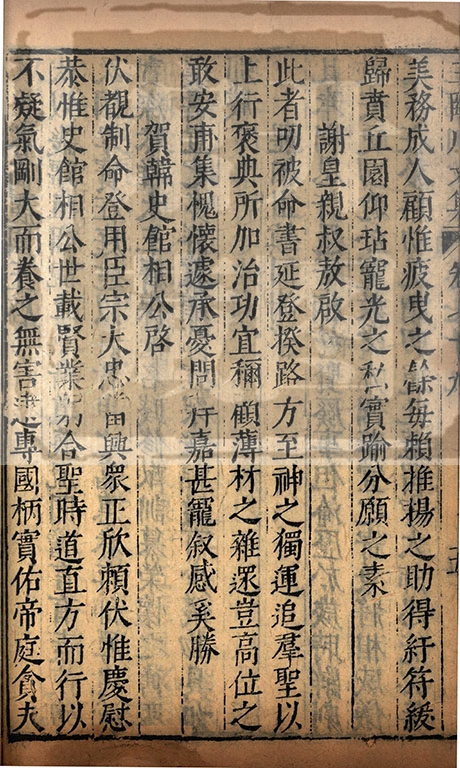 王臨川文集 卷七十九 五
美務成人顧惟疲曳之餘每賴推楊之助得紆符綬
歸賁丘園仰玷寵光之私實踰分願之素
謝皇親叔敖啟
此者叨被命書延登揆路方至神之獨運追羣聖以
上行褒典所加治功宜稱顧薄材之雜還豈高位之
敢安再集愧懷遽承憂問荐嘉甚寵叙感奚勝
賀韓史館相公啓
伏覩制命登用臣宗大忠當興衆正欣賴伏惟慶慰
恭惟史館相公世載賢業合聖時道直方而行以
不疑氣剛大而養之無害專國柄實佑帝庭貪夫